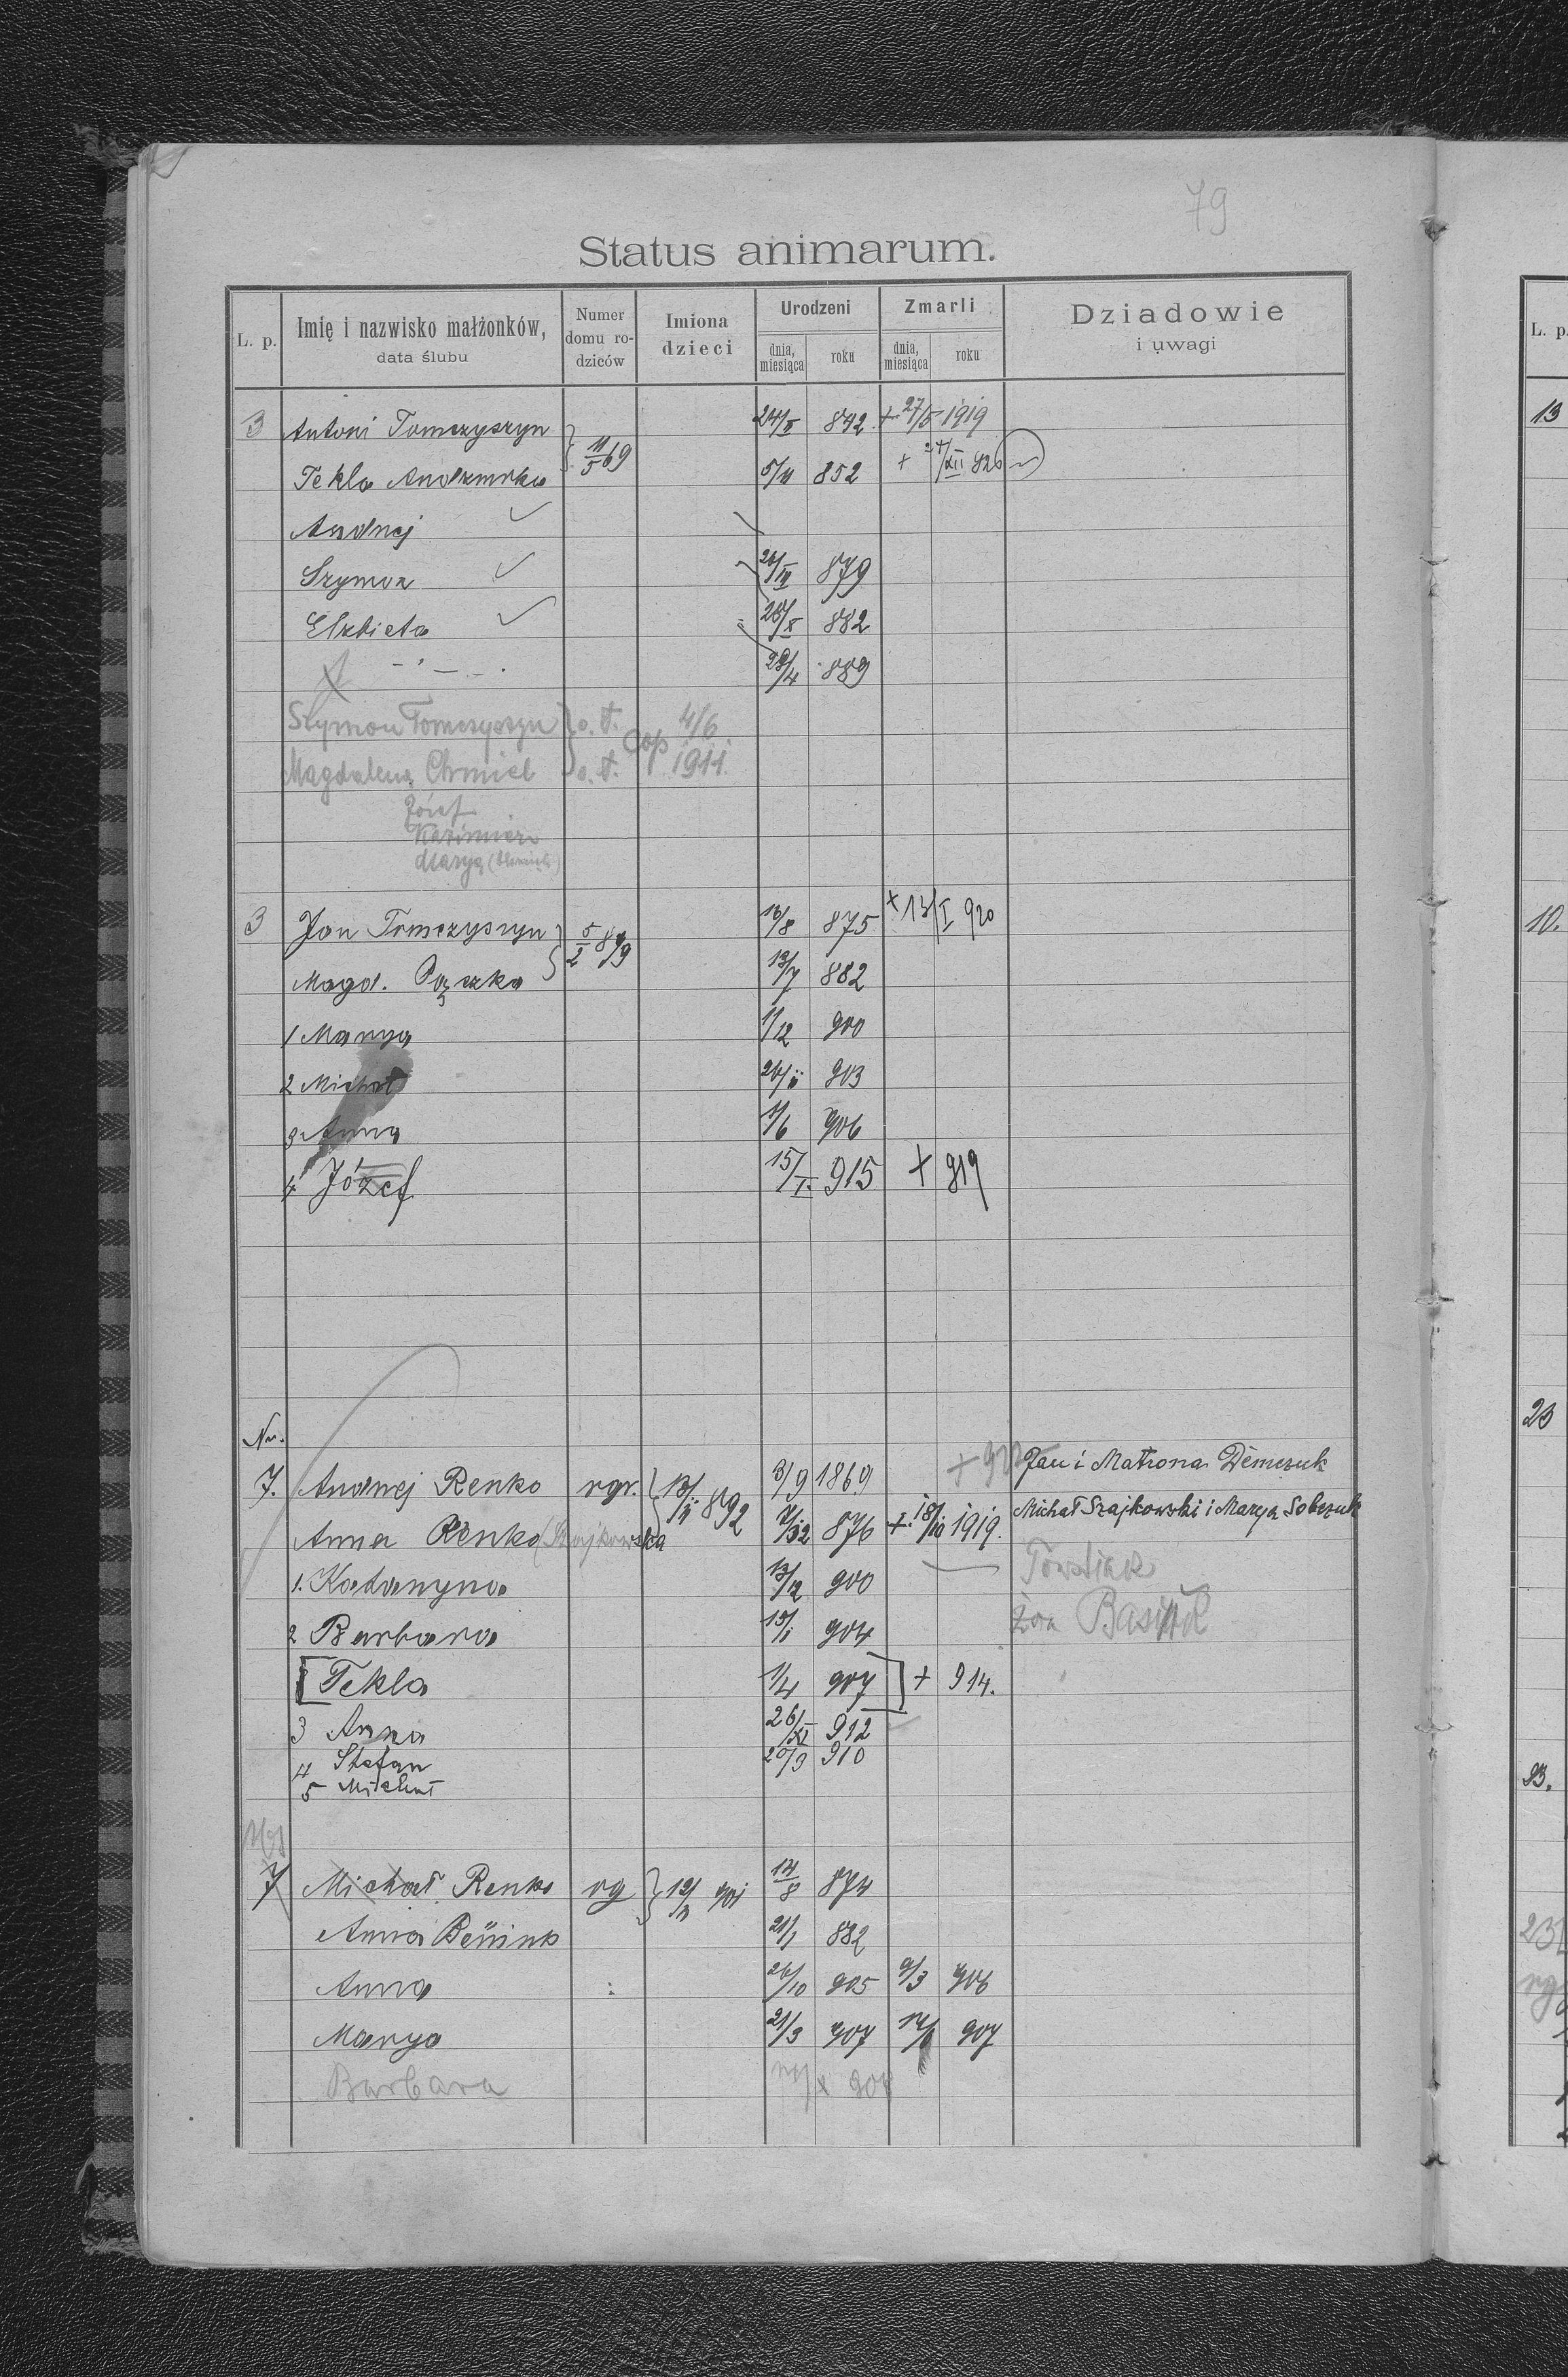 79
Status animarum.
L. p.
Imię i nazwisko małżonków,
data ślubu
Numer domu rodziców
Imiona dzieci
Urodzeni
dnia, miesiąca
roku
Zmarli
dnia, miesiąca
roku
Dziadowie
i uwagi
L. p.
3 Antoni Tomczyszyn 11/5 69 24/X 842 + 27/5 1919
Tekla 5/11 852 + 24/XII 820
Andrzej
Szymon 879
Elżbieta 28/X 882
29/4 889
Szymon Tomczyszyn o. t. cop 4/6
Magdalena Chmiel o. t. 1911.
Józef
Kazimierz
Marya
3 Jan Tomczyszyn 5/2 899 16/8 875 + 13/I 920
Magd. Pączka 13/7 882
1 Marya 1/12 900
2 Michał 903
3 Anna 1/6 906
4 Józef 15/I. 915 + 919
Nr.
7. Andrzej Renko rgr. 892 3/9 1869 + Jan i Matrona Demczuk
Anna Renko (Szajkowska 876 + 18/ 1919. Michał Szajkowski i Marya Sobczuk
1. Katarzyna 13/12 900
2 Barbara 15/1 904
[Tekla 1/4 907] + 914.
3 Anna 26/XI 912
4 Stefan 20/9 910
5 Michał
7 Michał Renko rg 12/ 901 14/8 874
Anna 21/1 882
Anna 26/10 905 9/3 906
Marya 21/3 907 907
Barbara
13
10.
23
23.